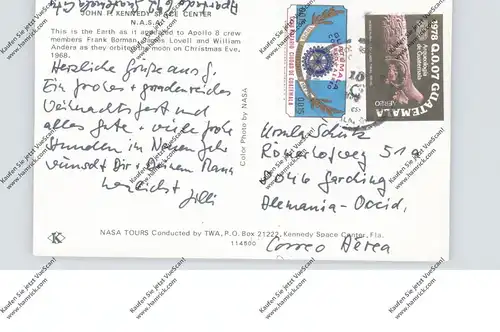 JOHN F. KENNEDY SPACE CENTER
N.A.S.A.
This is the Earth as it appeared to Apollo 8 crew
members Frank Borman, James Lovell and William
Anders as they orbited on Christmas Eve,
1968.
Herzliche Grüße aus G.
Ein großes + gnadenreiches
Weihnachtsfest und
alles Gute + viele frohe
Stunden im Neuen Jahr
wünscht Dir + Deinem Mann
herzlichst
Color Photo by NASA
GUATEMALA
CIUDAD DE GUATEMALA
Q.0.15
1978 Q.0.07 GUATEMALA
Arqueología
de Guatemala
AEREO
Ursula Schütz
Römerhofweg 51a
8046 Garching
Alemania-Occid.
Correo Aérea
K
NASA TOURS Conducted by TWA, P.O. Box 21222, Kennedy Space Center, Fla.
114800
Kaufen Sie jetzt mit VueScan!
www.hamrick.com